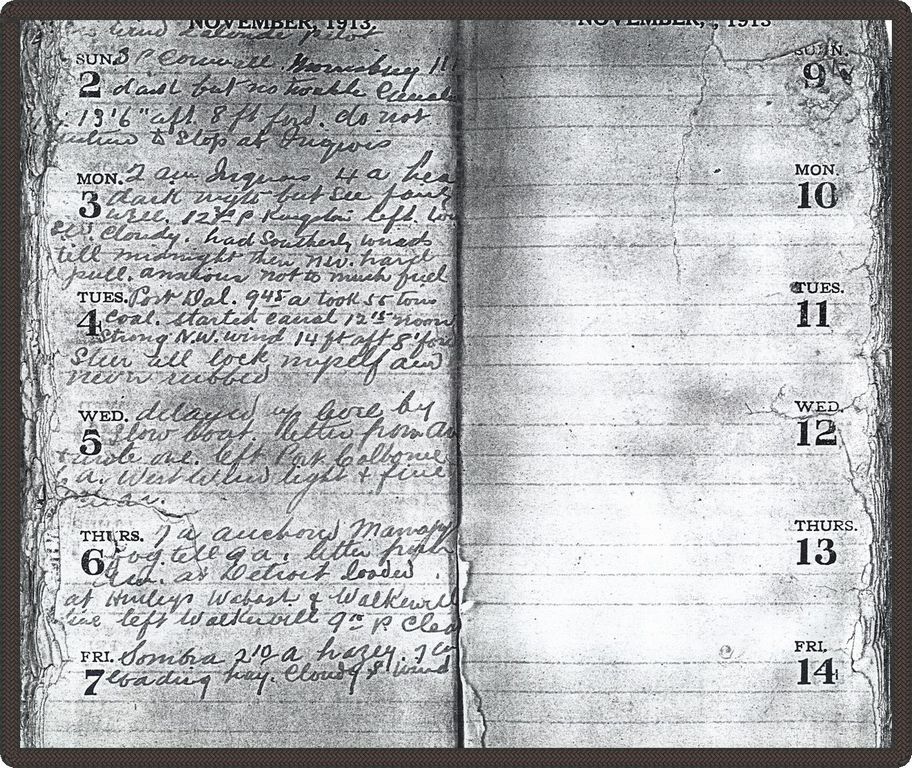 NOVEMBER, 1913.
pilot
SUN. 8 P Cornwall. Morrisburg 11
2 dark but no trouble Canal
13'6" aft. 8 ft ford. do not
to stop at Iroquois
MON. 2 am Iroquois 4 a
3 dark night but see fairly
well. 12 P Kingston left.
Cloudy. had Southerly winds
till midnight then N.W. hard
pull. anxious not to much fuel
TUES. Port Dal. 9 45 a took 55 tons
4 coal. started canal 12 15 noon
Strong N.W. wind 14 ft aft 8' for
Steer all lock myself and
never rubbed
WED. delayed up here by
5 slow boat. letter from
wrote one. left Port Colborne
a. West wind light & fine
THURS. 7 a anchored
6 Fog till 9 a. letter from
at Detroit loaded
at & Walkervil
left Walkervill 9 P
FRI. Sombra 2 10 a hazey. 7
7 loading hay. Cloudy & wind
NOVEMBER, 1913
SUN.
9
MON.
10
TUES.
11
WED.
12
THURS.
13
FRI.
14